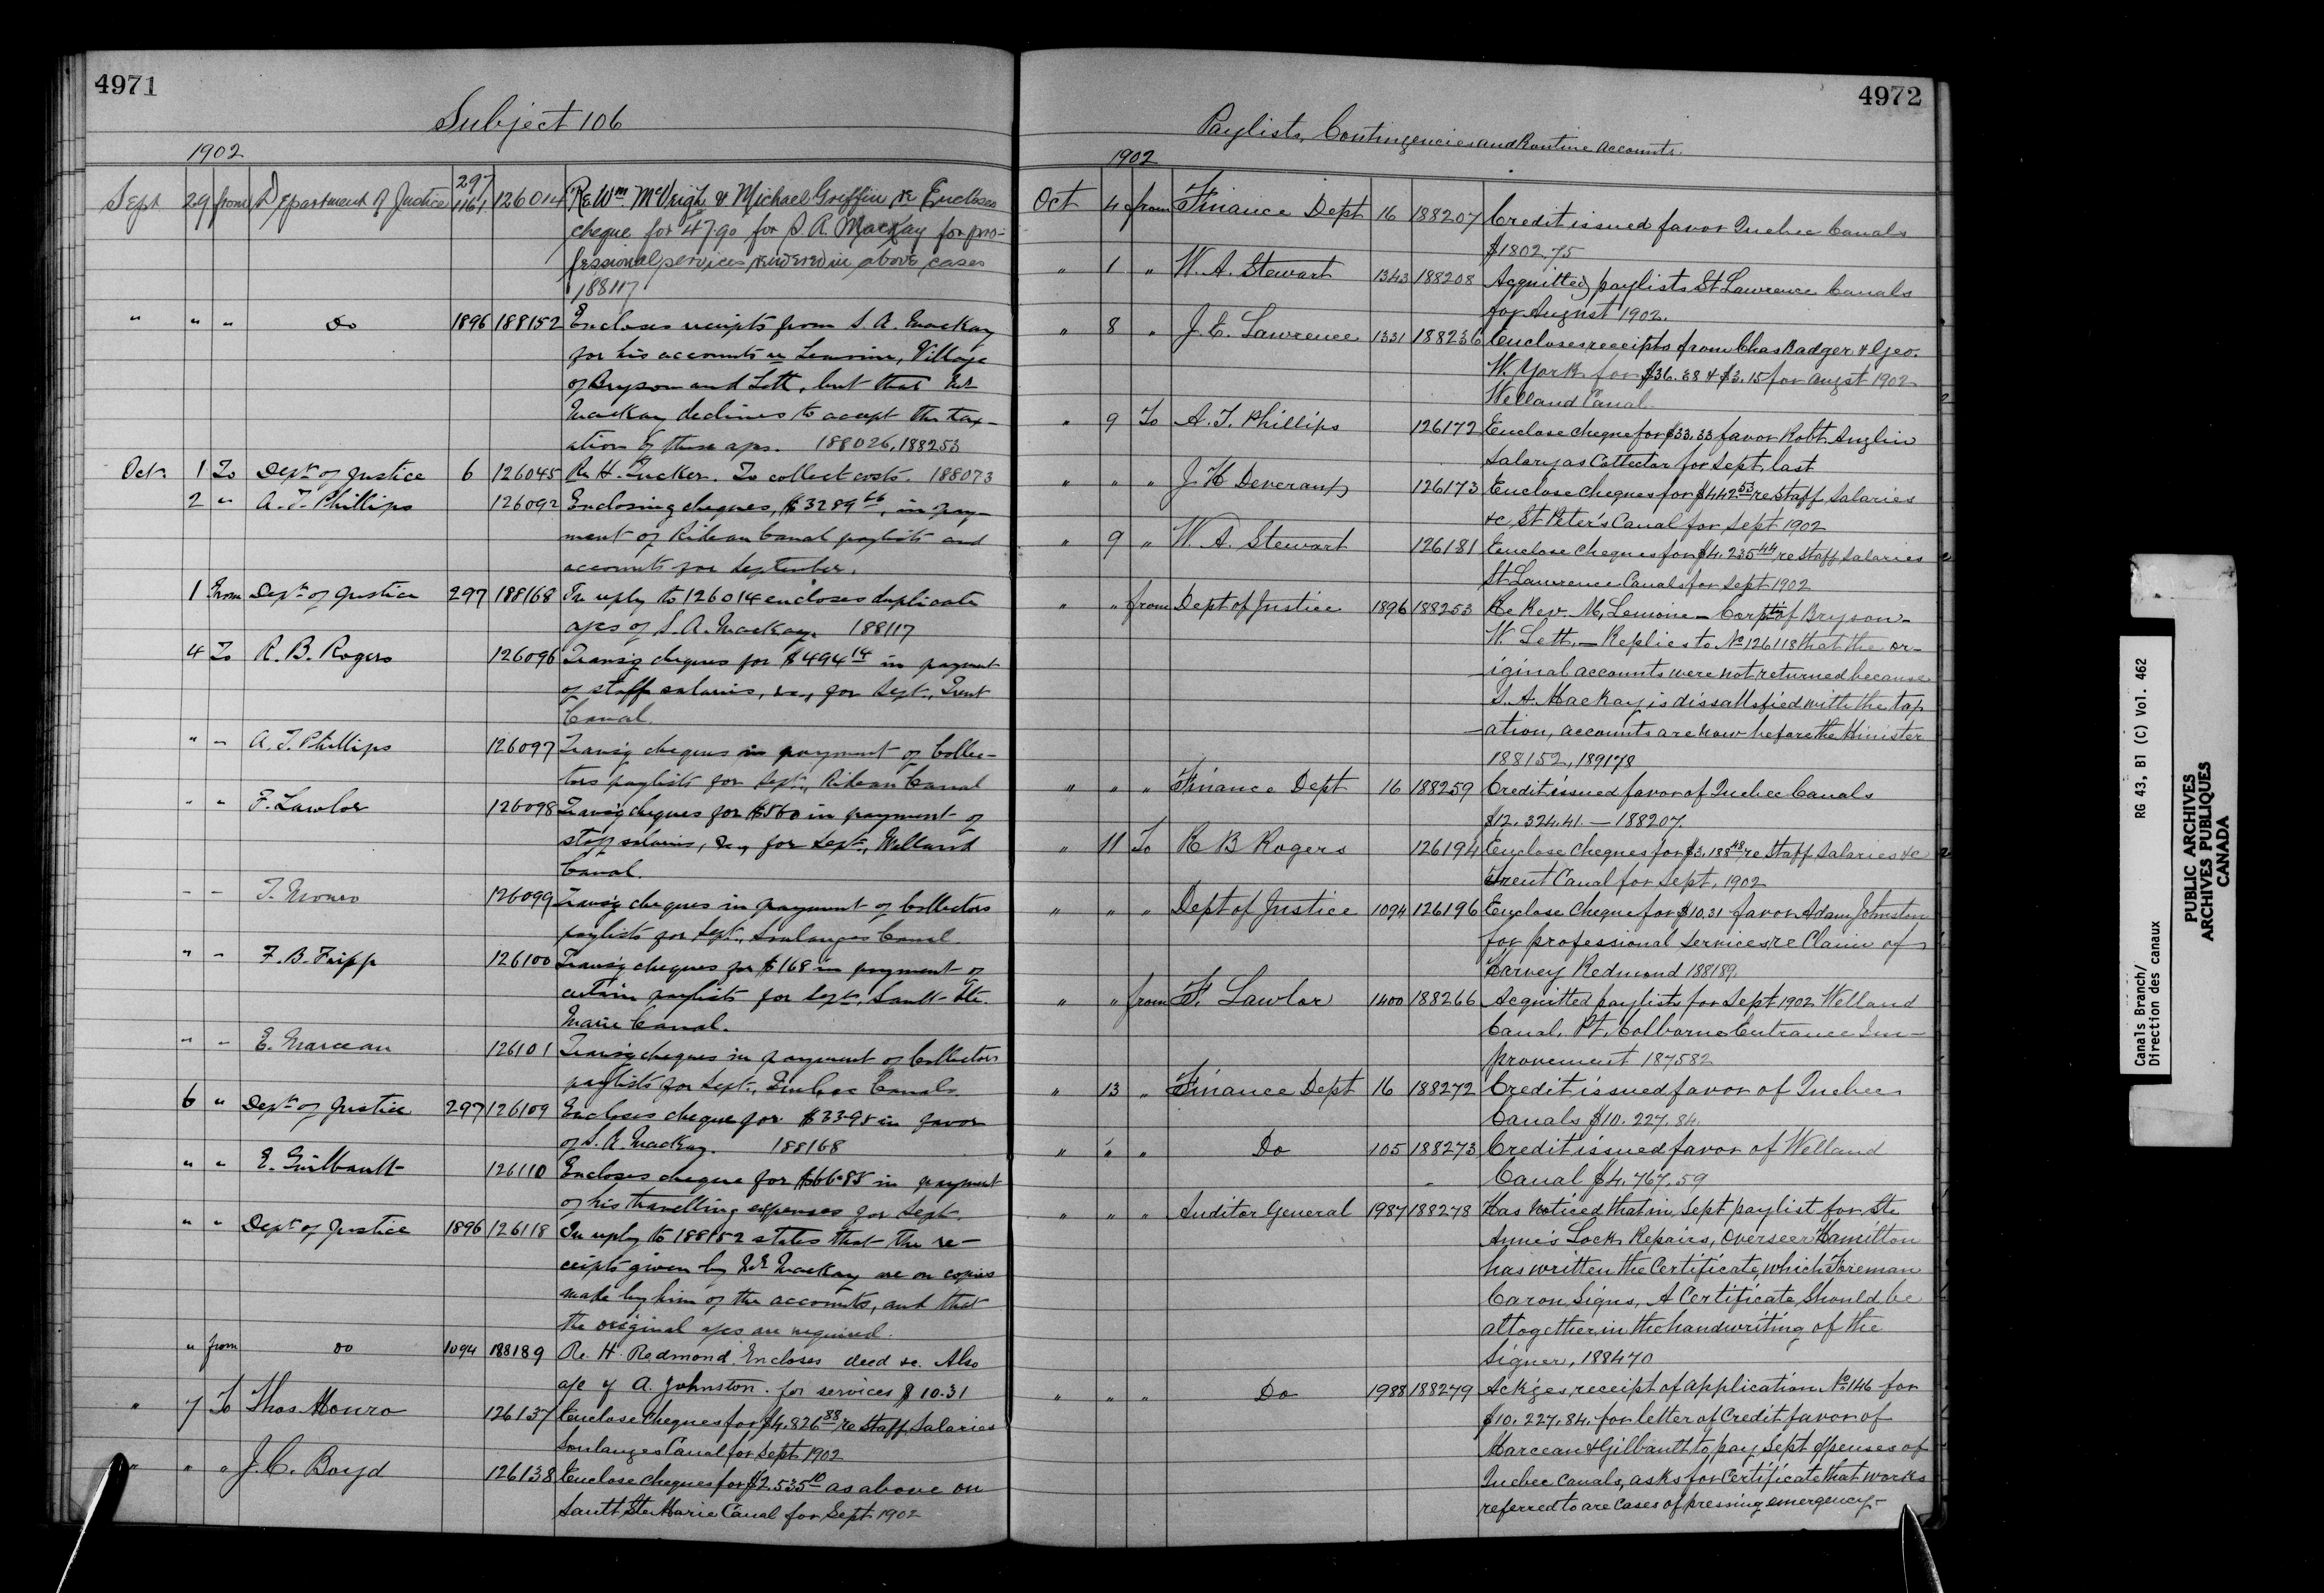 4971
Subject 106
1902
Sept 29 from Department of Justice 297 1161 126014 Re Wm. McVeigh & Michael Griffin &c Encloses
cheque for 47.90 for S. A. MacKay for pro-
fessional services rendered in above cases
188117
" " " Do 1896 188152 Encloses receipts from S. A. MacKay
for his accounts re Lemoine, Village
of Bryson and Lett, but that Mr
MacKay declines to accept the tax-
ation of these a/cs. 188026, 188253
Oct. 1 To Dept. of Justice 6 126045 Re H. Tucker. To collect costs. 188073
2 " A. T. Phillips 126092 Enclosing cheques, $3289.66, in pay-
ment of Rideau Canal paylists and
accounts for September.
1 From Dept. of Justice 297 188168 In reply to 126014 encloses duplicate
a/cs of S. A. MacKay. 188117
4 To R. B. Rogers 126096 Transg cheques for $494.14 in payment
of staff salaries, &c., for Sept., Trent
Canal.
" " A. T. Phillips 126097 Transg cheques in payment of Collec-
tors paylists for Sept., Rideau Canal
" " F. Lawlor 126098 Transg cheques for $560 in payment of
staff salaries, &c., for Sept., Welland
Canal.
" " T. Monro 126099 Transg cheques in payment of Collectors
paylists for Sept., Soulanges Canal.
" " F. B. Fripp 126100 Transg cheques for $168 in payment of
certain paylists for Sept., Sault Ste.
Marie Canal.
" " E. Marceau 126101 Transg cheques in payment of Collectors
paylists for Sept., Quebec Canals.
6 " Dept. of Justice 297 126109 Encloses cheque for $33.95 in favor
of S. A. MacKay. 188168
" " E. Guilbault 126110 Encloses cheque for $66.85 in payment
of his travelling expenses for Sept.
" " Dept. of Justice 1896 126118 In reply to 188152 states that the re-
ceipts given by Mr. MacKay are on copies
made by him of the accounts, and that
the original a/cs are required.
" from do 1094 188189 Re. H. Redmond. Encloses deed &c. Also
a/c of A. Johnston. for services $10.31
" 7 To Thos Monro 126137 Enclose cheques for $4.826.88 re Staff Salaries
Soulanges Canal for Sept 1902
" " " J. C. Boyd 126138 Enclose cheques for $2.535.10 as above on
Sault Ste Marie Canal for Sept 1902
4972
Paylists, Contingencies and Routine Accounts.
1902
Oct 4 from Finance Dept 16 188207 Credit issued favor Quebec Canals
$1802.75
" 1 " W. A. Stewart 1343 188208 Acquitted paylists St Lawrence Canals
for August 1902.
" 8 " J. E. Lawrence 1331 188236 Encloses receipts from Chas Badger & Geo.
W. York for $36.88 & $3.15 for augst 1902
Welland Canal
" 9 To A. T. Phillips 126172 Enclose cheque for $33.33 favor Robt Anglin
Salary as Collector for Sept last
" " " J H Deveraux 126173 Enclose cheques for $442.53 re Staff Salaries
&c St Peter's Canal for Sept 1902
" 9 " W. A. Stewart 126181 Enclose cheques for $4.235.44 re Staff Salaries
St Lawrence Canals for Sept 1902
" " from Dept of Justice 1896 188253 Re Rev. M, Lemoine - Corptn of Bryson -
W. Lett. - Replies to No 126118 that the or-
iginal accounts were not returned because
S. A. MacKay is dissatisfied with the tax
ation, accounts are now before the Minister
188152, 189178
" " " Finance Dept 16 188259 Credit issued favor of Quebec Canals
$12.324.41. - 188207.
" 11 To R B Rogers 126194 Enclose cheques for $3.188.48 re Staff Salaries &c
Trent Canal for Sept. 1902
" " " Dept of Justice 1094 126196 Enclose cheque for $10.31 favor Adam Johnston
for professional services re Claim of
Harvey Redmond 188189.
" " from F. Lawlor 1400 188266 Acquitted paylists for Sept 1902 Welland
Canal. Pt. Colborne Entrance Im-
provement 187582
" 13 " Finance Dept 16 188272 Credit issued favor of Quebec
Canals $10.227.84.
" " " Do 105 188273 Credit issued favor of Welland
Canal $4.767.59
" " " Auditor General 1987 188278 Has noticed that in Sept paylist for Ste
Anne's Lock Repairs, Overseer Hamilton
has written the Certificate, which Foreman
Caron signs, A Certificate should be
altogether in the handwriting of the
signer, 188470
" " " Do 1988 188279 Ackges receipt of application No 146 for
$10.227.84. for letter of Credit favor of
Marceau & Gilbault to pay Sept expenses of
Quebec Canals, asks for Certificate that works
referred to are cases of pressing emergency-
Canals Branch/ RG 43, B1 (C) Vol. 462
Direction des canaux
PUBLIC ARCHIVES
ARCHIVES PUBLIQUES
CANADA